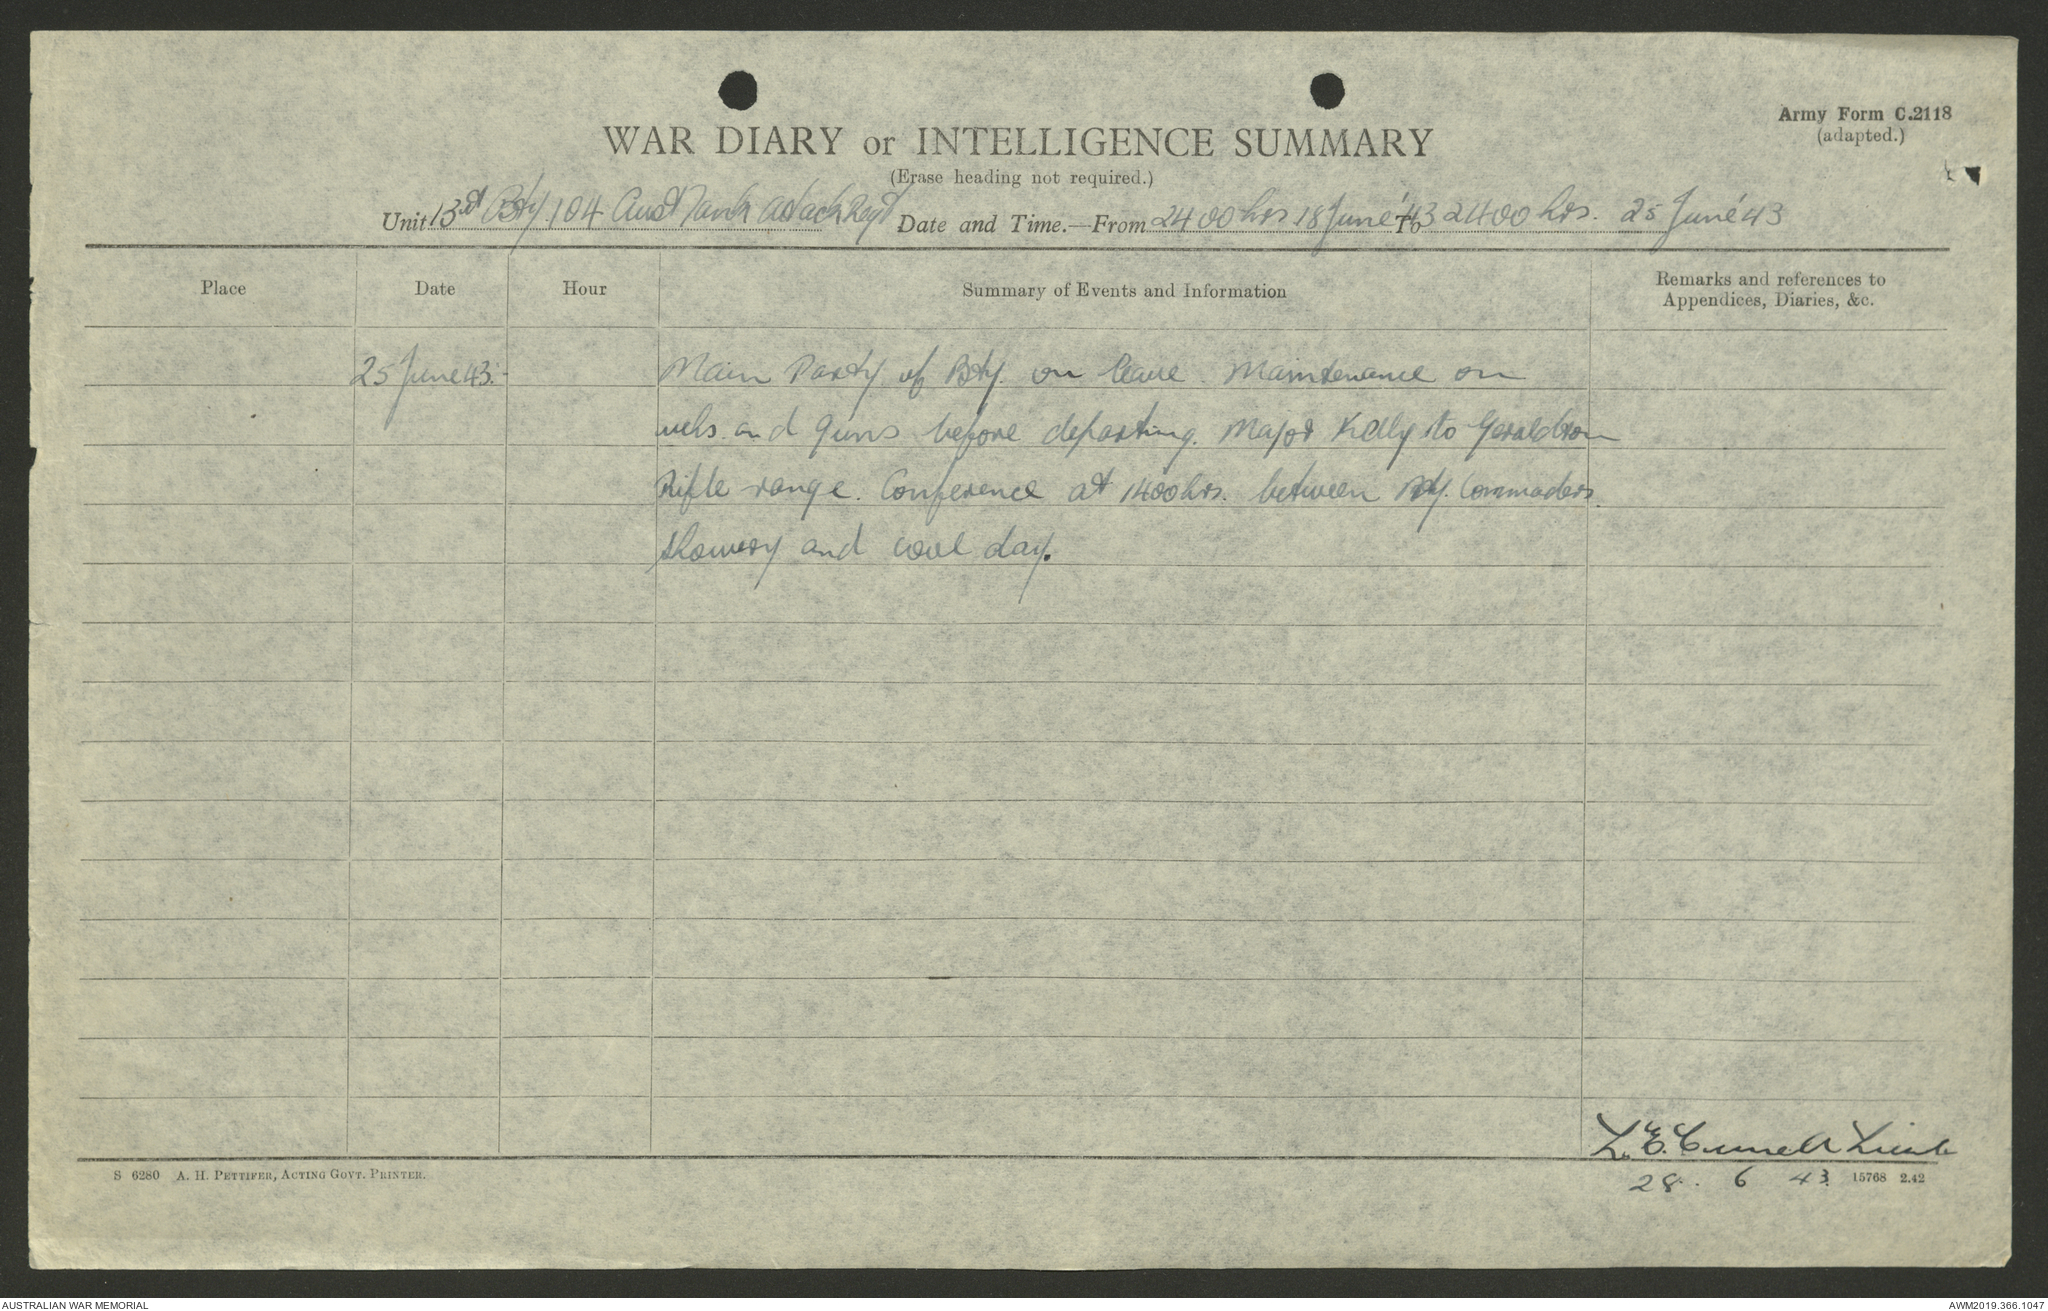 Army Form C.2118
(adapted.)
WAR DIARY or INTELLIGENCE SUMMARY
(Erase heading not required.)
Unit 13th Bty. 104 Aust Tank Attack Regt Date and Time.—From 2400 hrs 18 June '43 To 2400 hrs. 25 June '43
Place Date Hour Summary of Events and Information Remarks and references to
Appendices, Diaries, &c.
25 June 43.- Main Party of Bty. on leave. Maintenance on
vehs. and guns before departing. Major Kelly to Geraldton
Rifle range. Conference at 1400 hrs. between Bty. Commaders.
Showery and cool day.
L. E. Lieut
S 6280 A. H. PETTIFER, ACTING GOVT. PRINTER.
28. 6 43. 15768 2.42
AUSTRALIAN WAR MEMORIAL AWM2019.366.1047